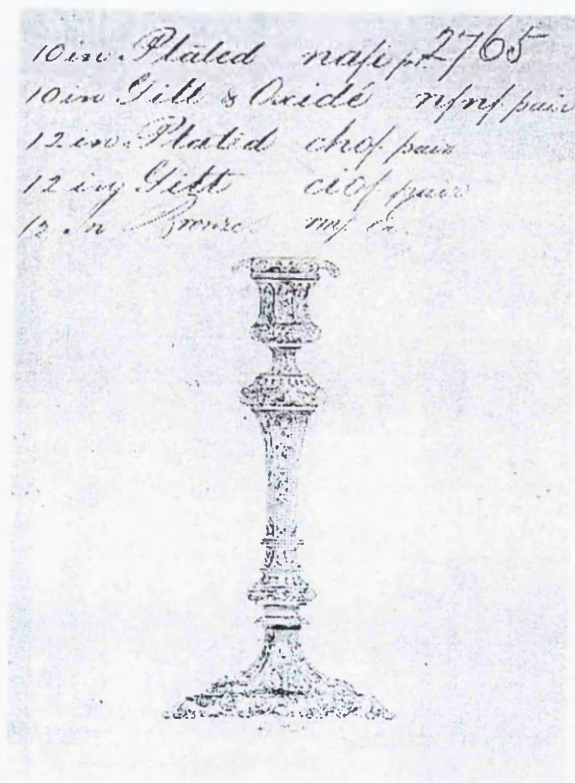 10 in. Plated na/ pr 2765
10 in Gilt & Oxidé n/n/ pair
12 in. Plated cho/ pair
12 in Gilt cio/ pair
12 in Bronze nn/